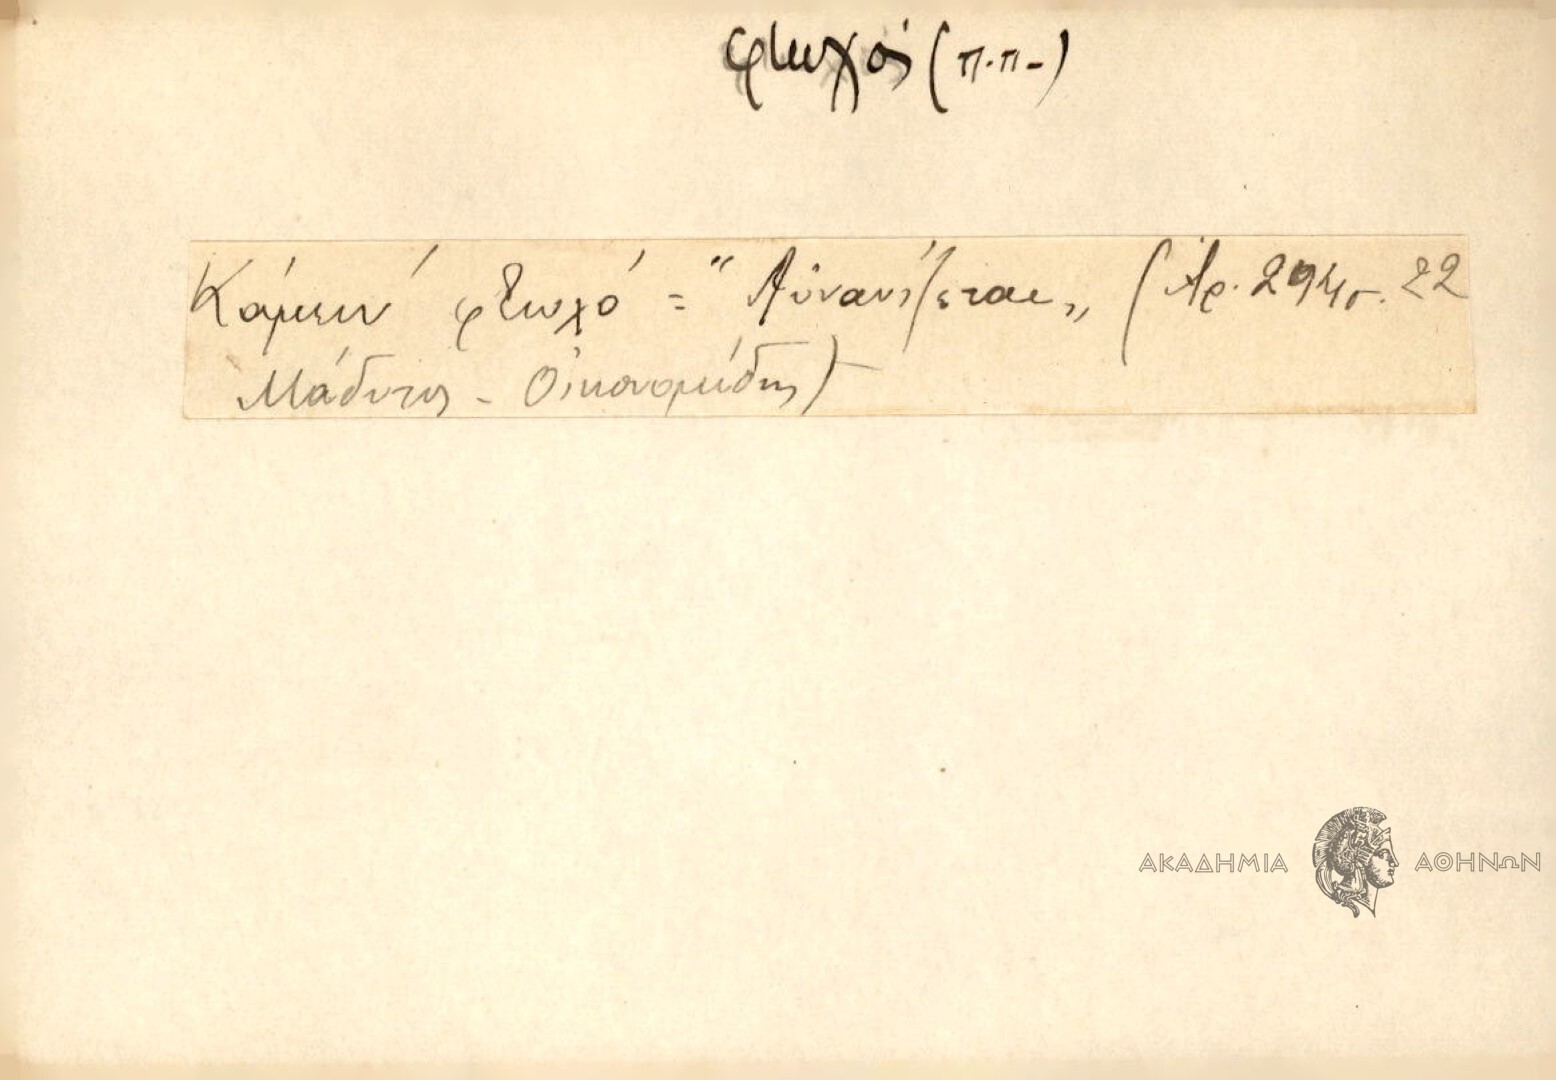 φτωχός (π.π-)
Κάμειν' φτωχό = " Αὐνανίζεται „ (Ἀρ. 294 σ. 22
Μάδυτος - Οἰκονομίδης)
ΑΚΑΔΗΜΙΑ ΑΘΗΝΩΝ